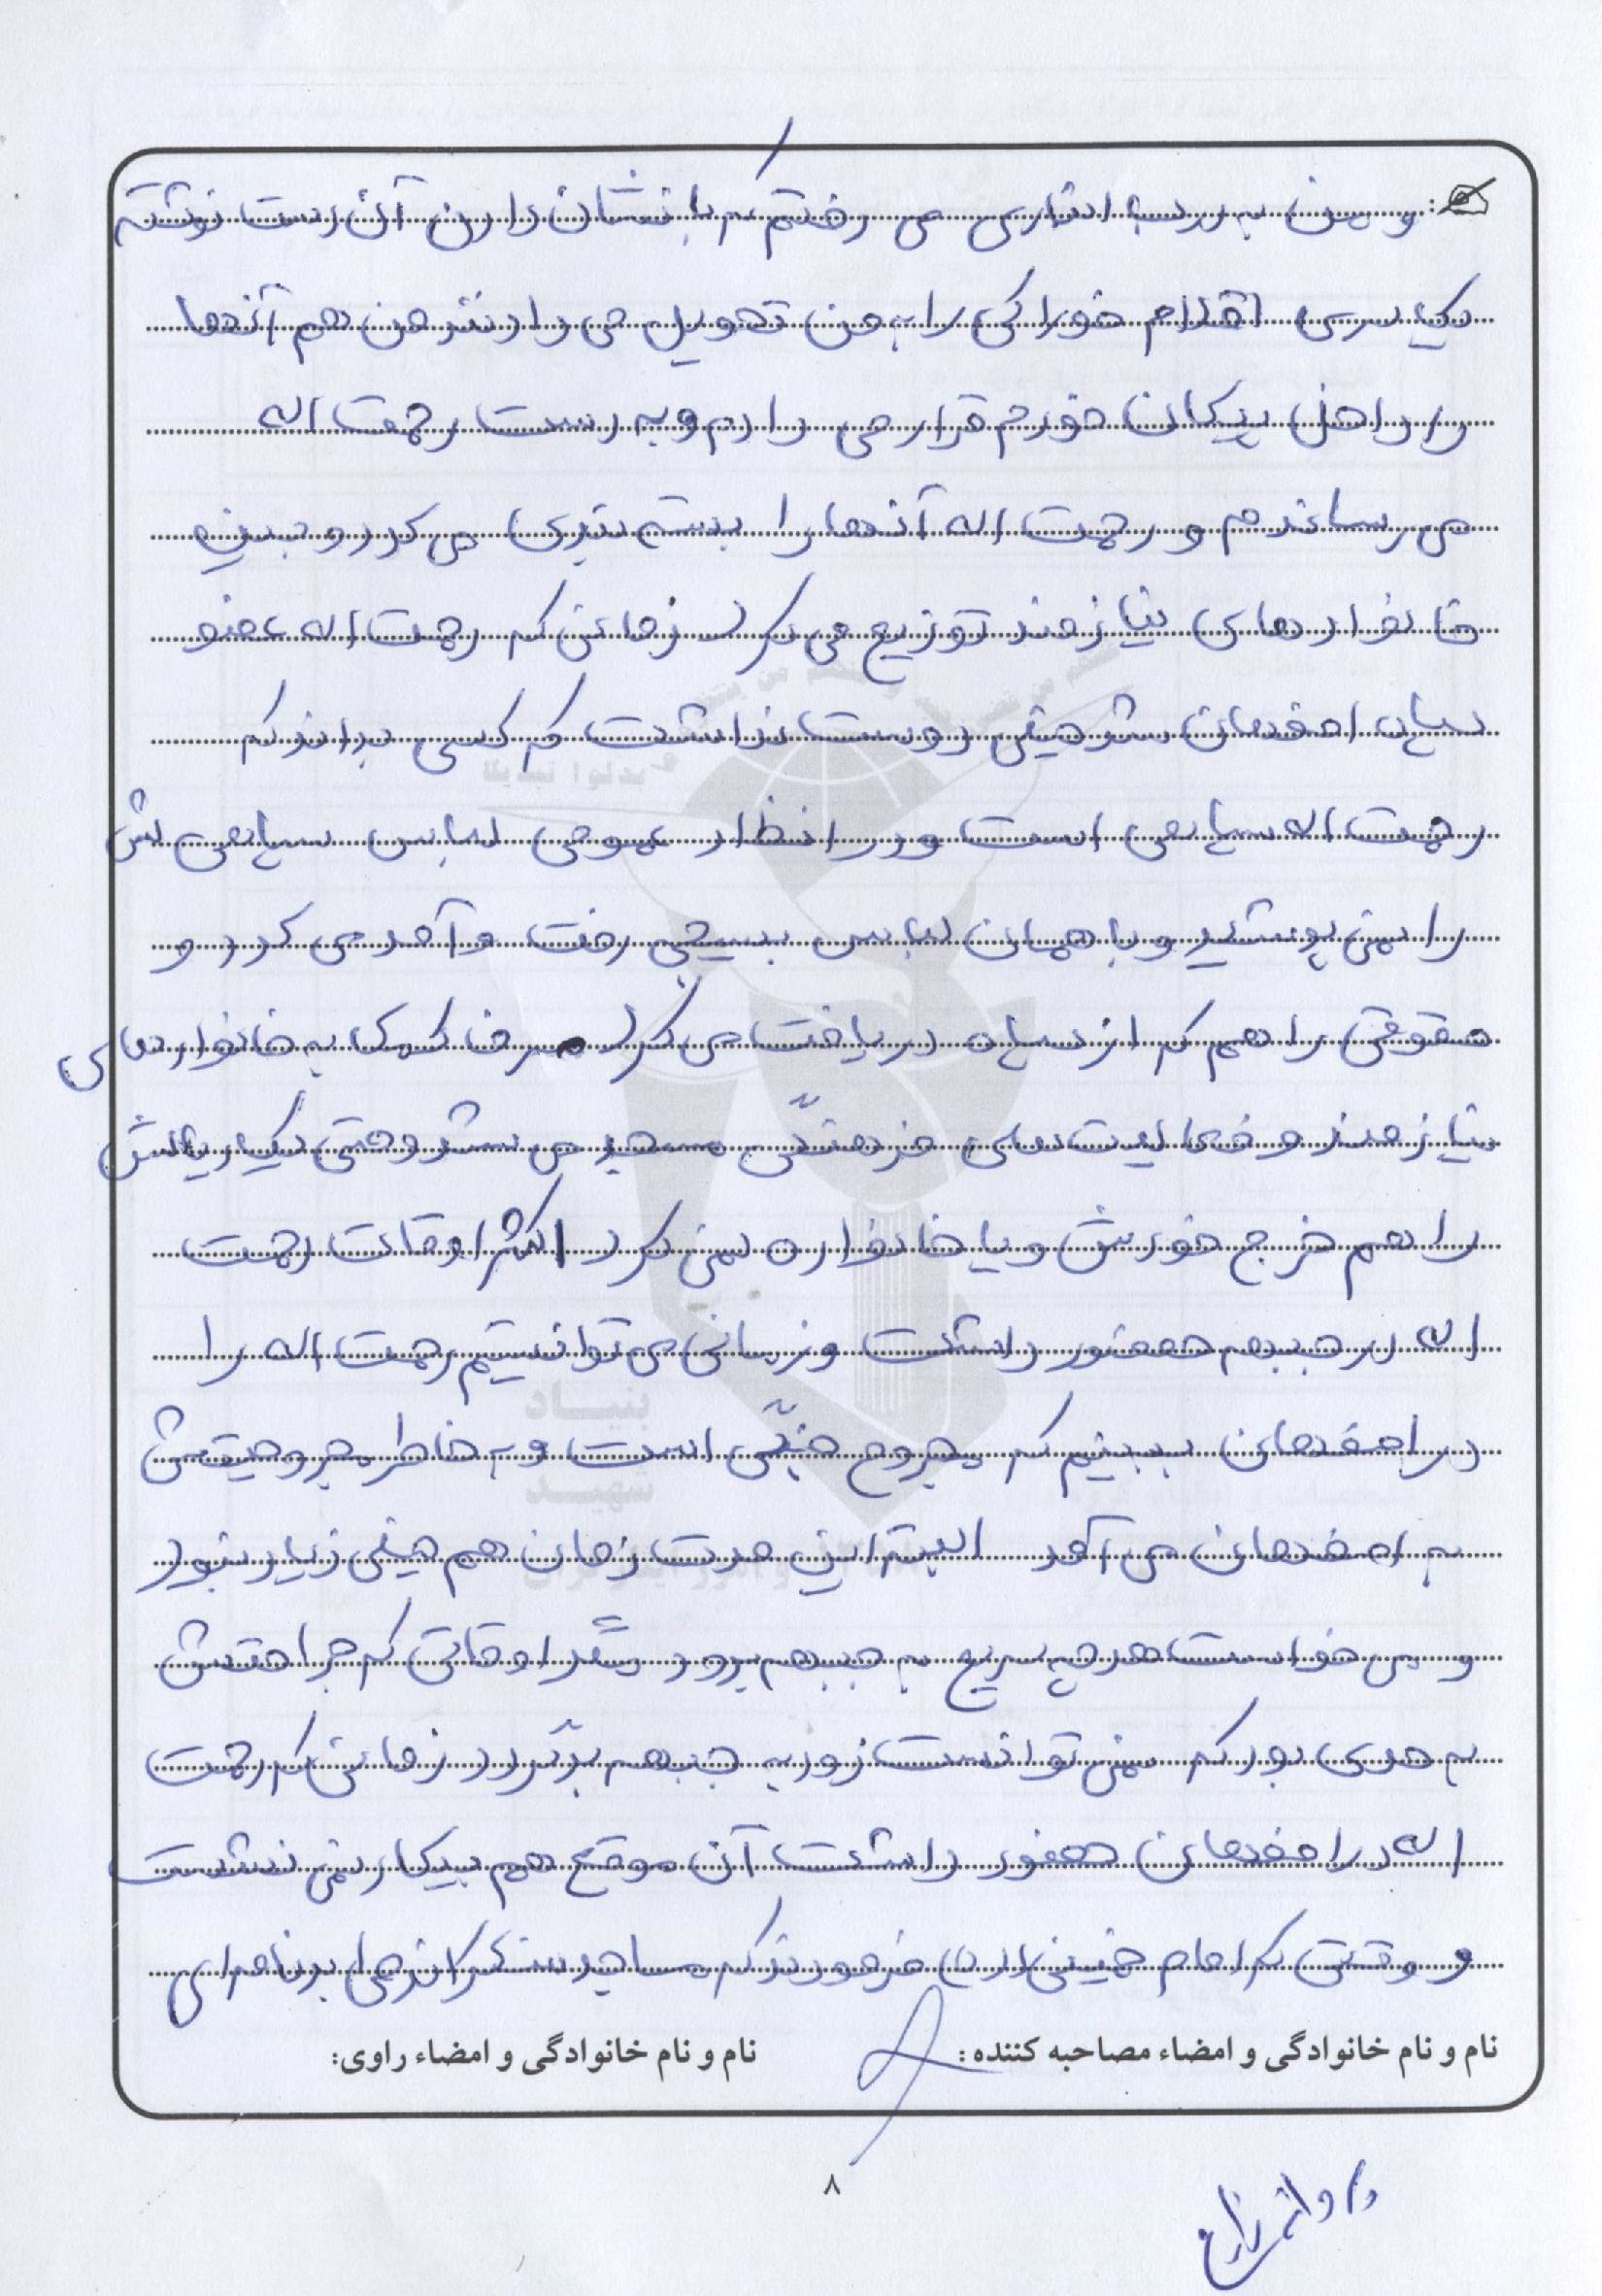 و من به درب انباری می رفتم که با نشان دادن آن دست نوشته
یک سری اقلام خوراکی را به من تحویل می دادند من هم آنها
را داخل پیکان خودم قرار می دادم و به دست رحمت اله
می رساندم و رحمت اله آنها را بسته بندی می کرد و بین
خانوارهای نیازمند توزیع می کرد زمانی که رحمت اله عضو
سپاه اصفهان شد خیلی دوست نداشت که کسی بداند که
رحمت اله سپاهی است و در انظار عمومی لباس سپاهی ش
را نمی پوشید و با همان لباس بسیجی رفت و آمد می کرد و
حقوقی را هم که از سپاه دریافت می کرد صرف کمک به خانوارهای
نیازمند و فعالیت های فرهنگی مسجد می شد و حتی یک ریالش
را هم خرج خودش و یا خانواده نمی کرد اکثر اوقات رحمت
اله در جبهه حضور داشت و زمانی می توانستیم رحمت اله را
در اصفهان ببینیم که مجروح جنگی است و به خاطر مجروحیتش
به اصفهان می آمد البته این مدت زمان هم خیلی زیاد نبود
و می خواست هر چه سریع به جبهه برود مگر اوقاتی که جراحتش
به حدی بود که نمی توانست زود به جبهه برگردد زمانی که رحمت
اله در اصفهان حضور داشت آن موقع هم بیکار نمی نشست
و وقتی که امام خمینی (ره) فرمودند که مساجد سنگر اند برنامه ای
نام و نام خانوادگی و امضاء مصاحبه کننده: نام و نام خانوادگی و امضاء راوی:
۸